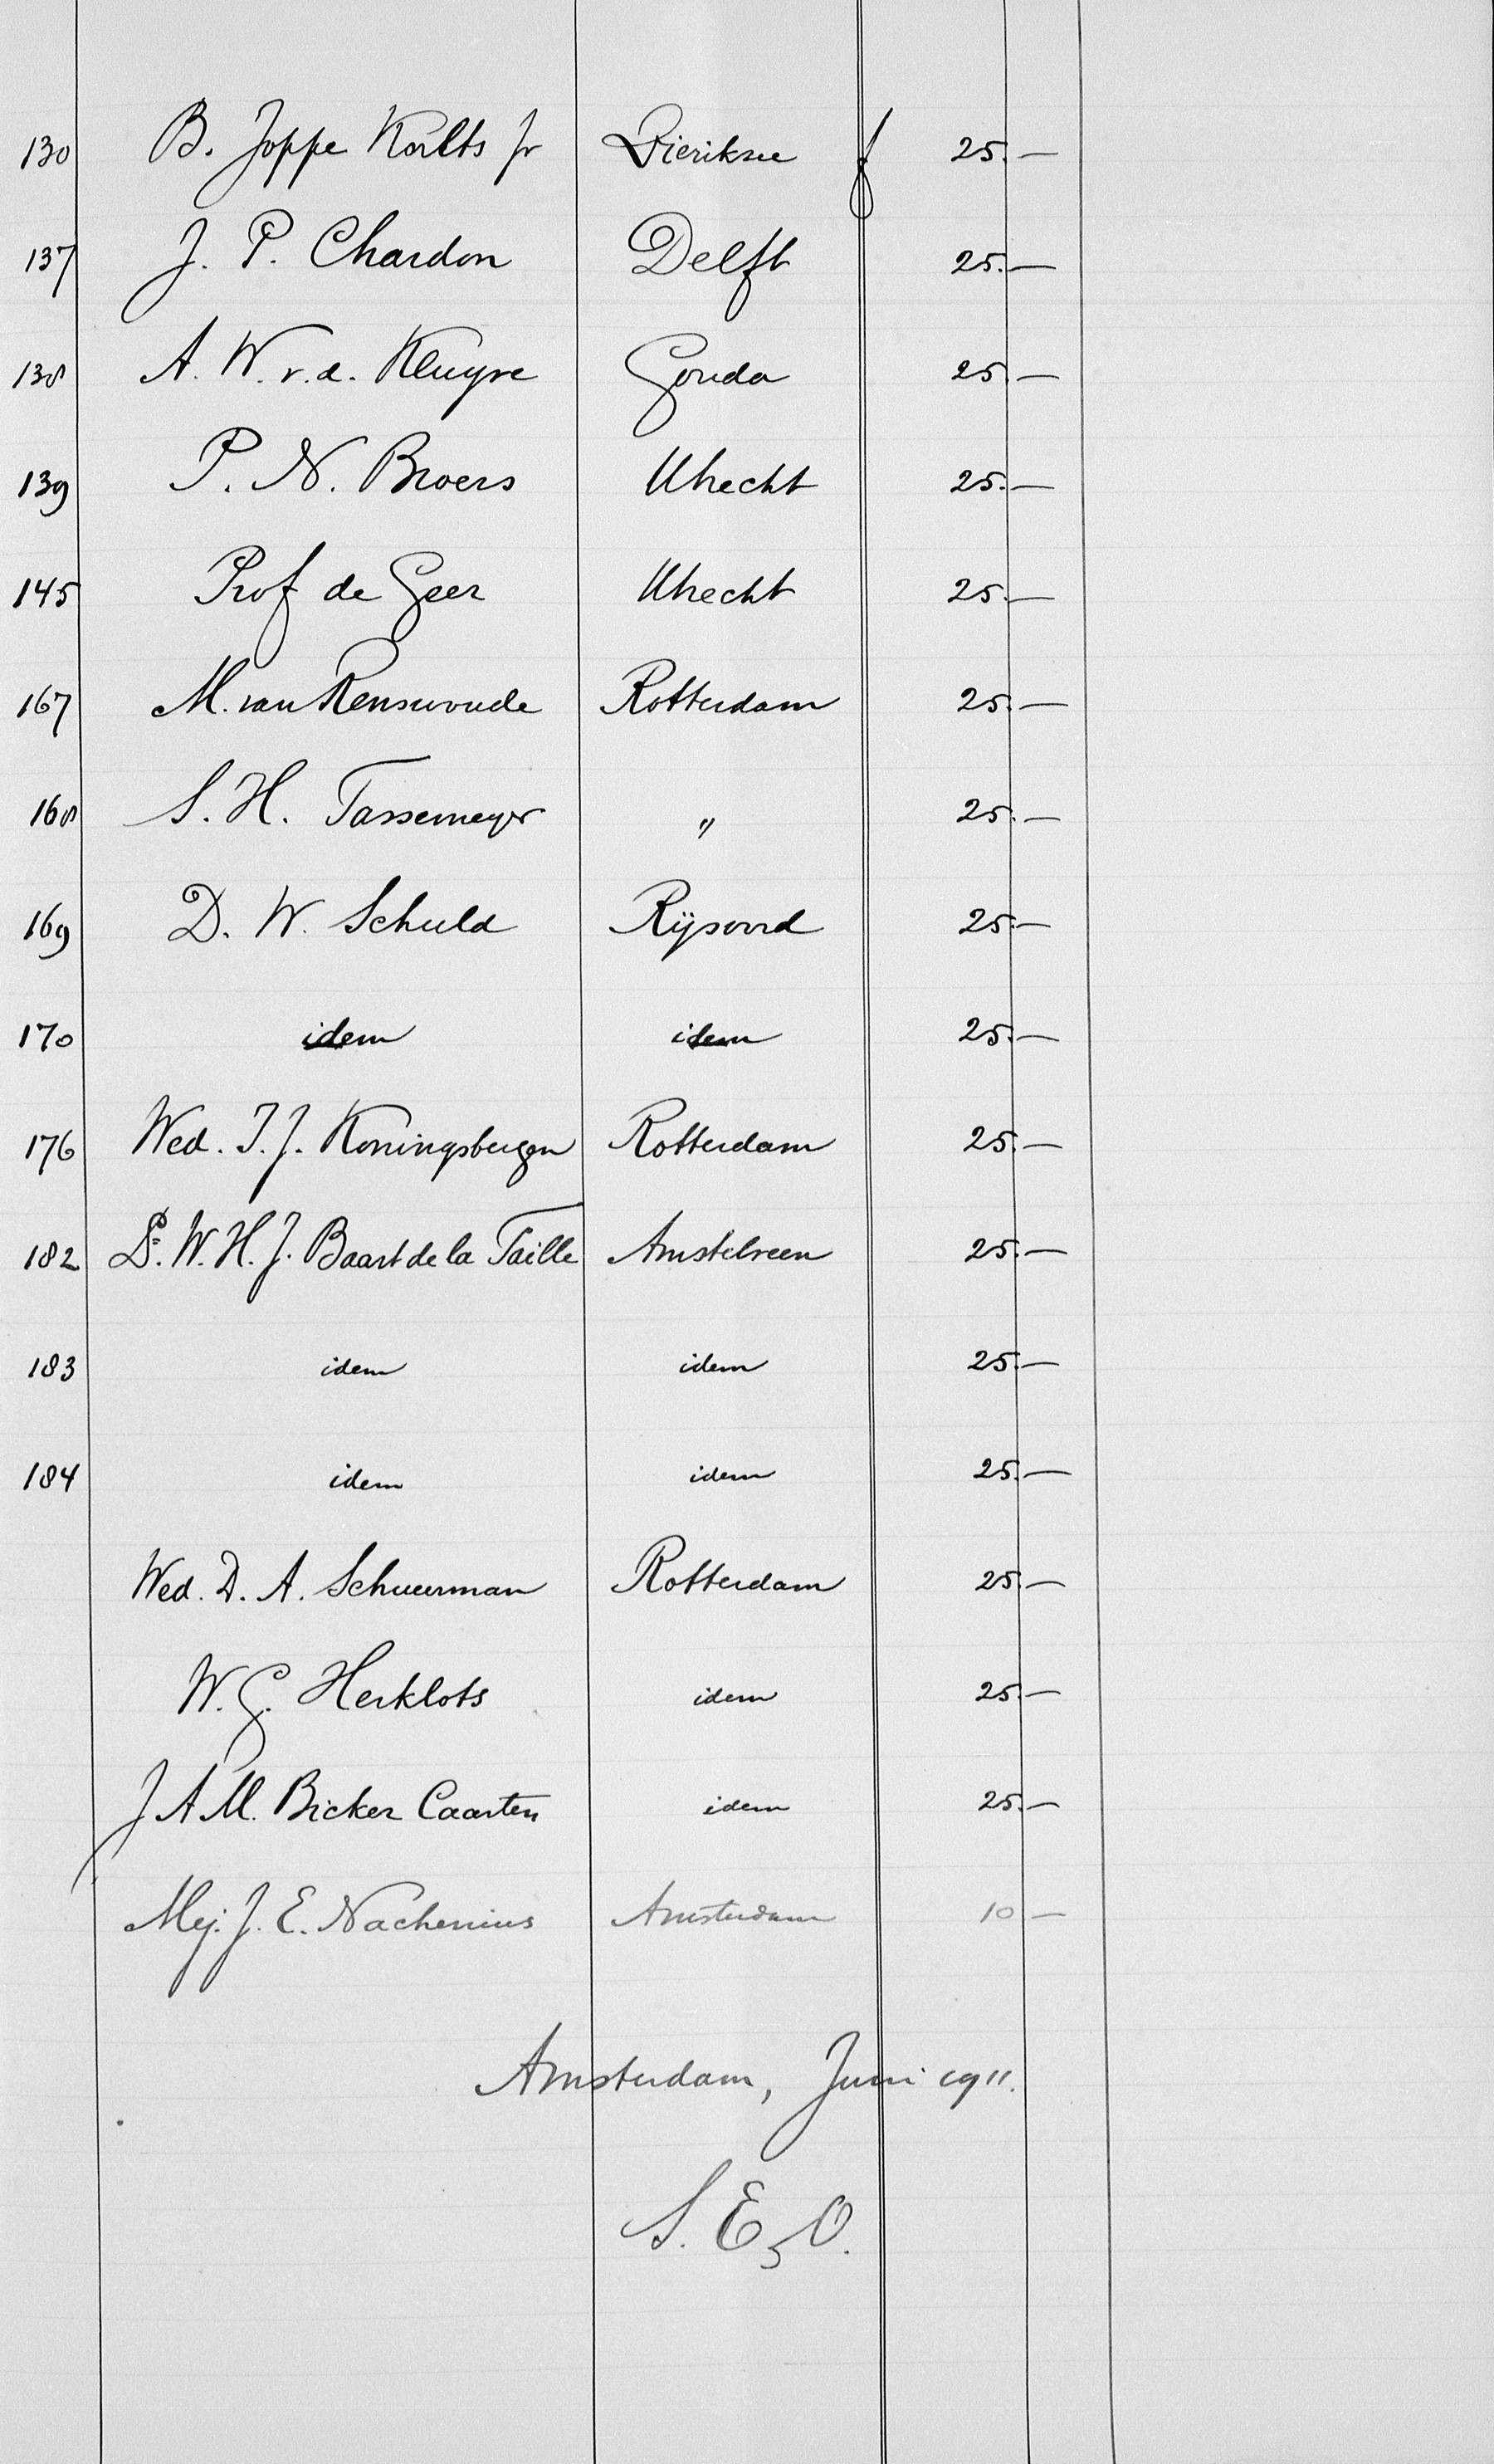 130 B. Joppe Koolts Jr Zieriksee f 25.—
137 J. P. Chardon Delft 25.—
138 A. W. v. d. Kluyve Gouda 25.—
139 P. N. Broers Utrecht 25.—
145 Prof de Geer Utrecht 25.—
167 M. van Renswoude Rotterdam 25.—
168 S. H. Tassemeyer " 25.—
169 D. W. Schuld Rijsoord 25.—
170 idem idem 25.—
176 Wed. J. J. Koningsbergen Rotterdam 25.—
182 Ds. W. H. J. Baart de la Faille Amstelveen 25.—
183 idem idem 25.—
184 idem idem 25.—
Wed. D. A. Schuurman Rotterdam 25.—
W. G. Herklots idem 25.—
J A M. Bicker Caarten idem 25.—
Mej. J. E. Nachenius Amsterdam 10 —
Amsterdam, Juni 1911.
S. E & O.